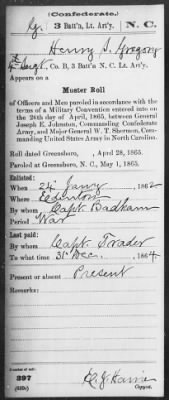 (Confederate.)
G. 3 Batt'n Lt. Art'y. N. C.
Henry S. Gregory
4th Sergt, Co. B, 3 Batt'n N. C. Lt. Art'y.
Appears on a
Muster Roll
of Officers and Men paroled in accordance with the
terms of a Military Convention entered into on
the 26th day of April, 1865, between General
Joseph E. Johnston, Commanding Confederate
Army, and Major General W. T. Sherman, Com-
manding United States Army in North Carolina.
Roll dated Greensboro, April 28, 1865.
Paroled at Greensboro, N. C., May 1, 1865.
Enlisted:
When 24 Jany, 1862
Where Edenton
By whom Capt. Badham
Period War
Last paid:
By whom Capt. Trader
To what time 31 Dec., 1864
Present or absent Present
Remarks:
Number of roll:
397
Copyist.